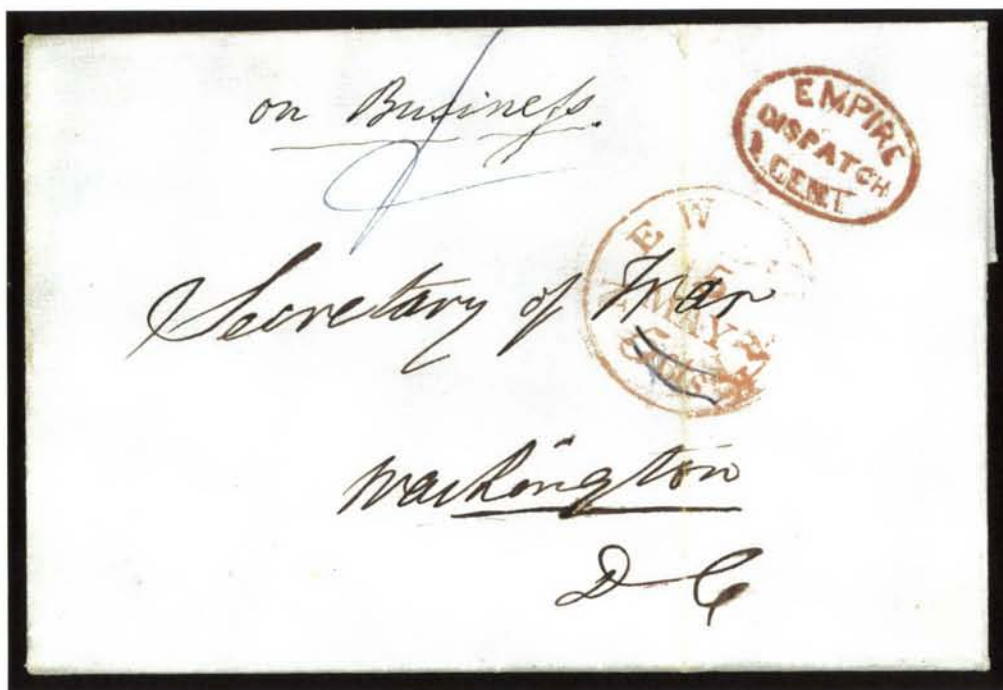 on Business.
EMPIRE
DISPATCH
1 CENT
E W
5
MAY
5 cts
Secretary of War
Washington
D C